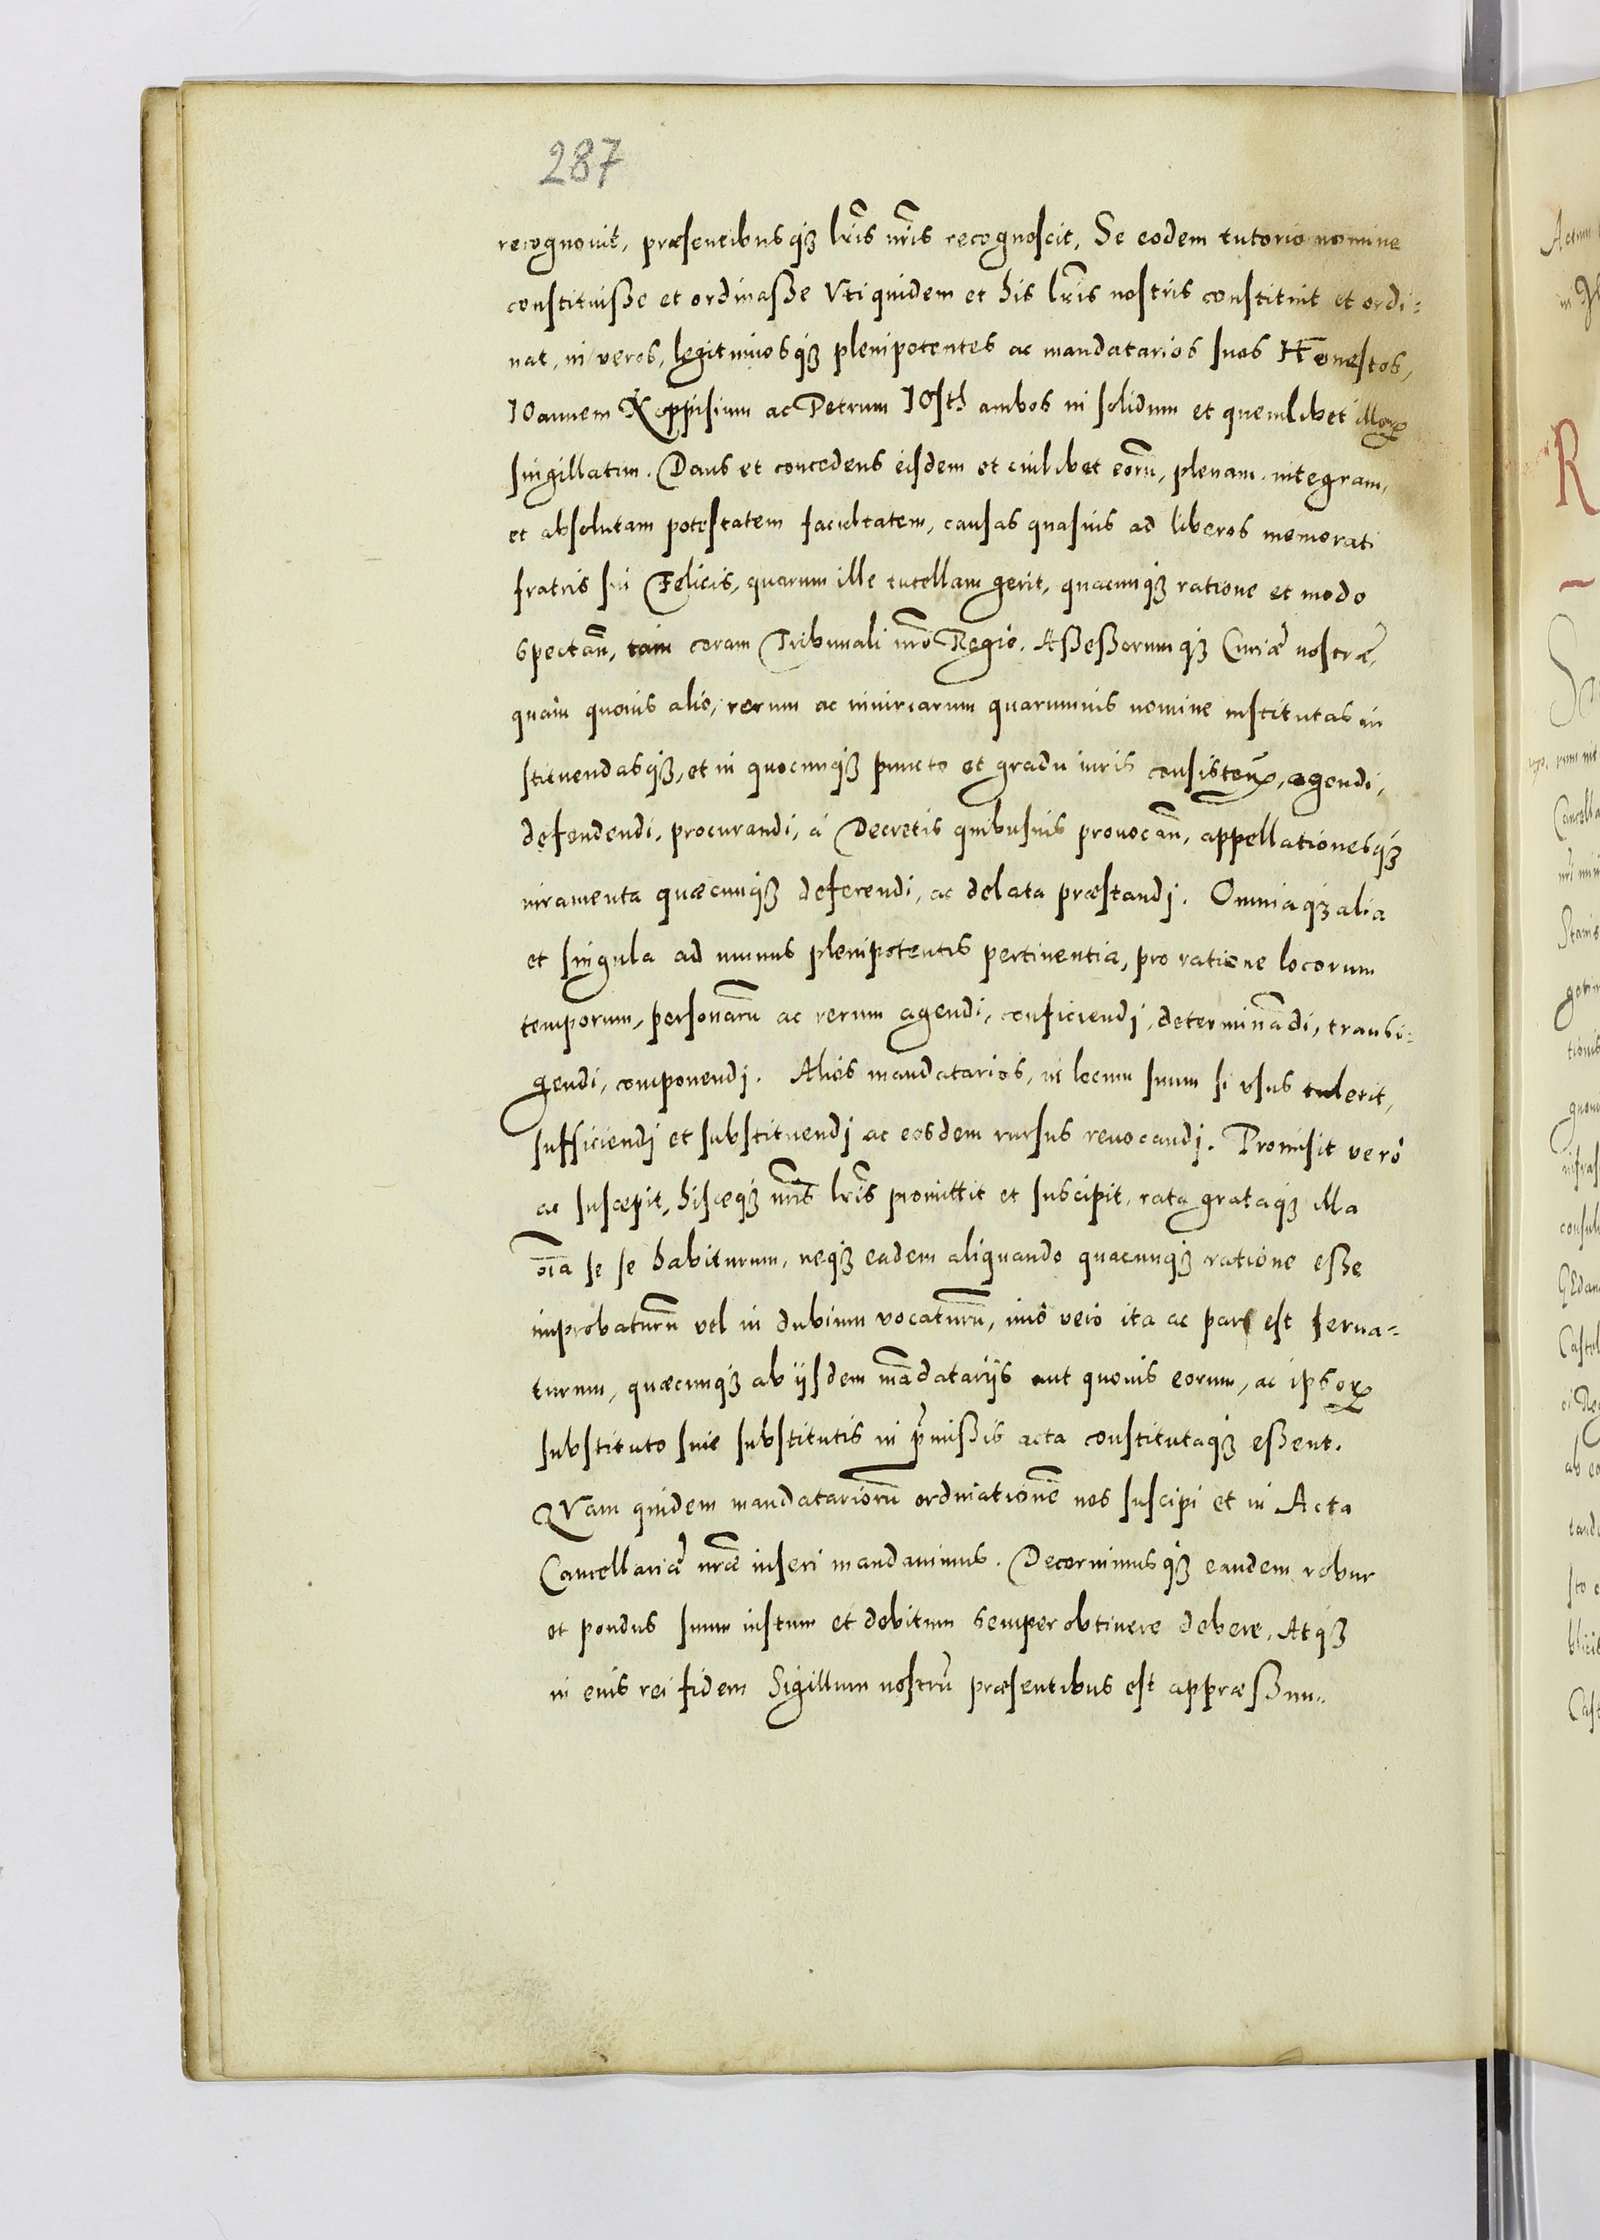 287
recognouit, praesentibusq₃ lr̃is nr̃is recognoscit, Se eodem tutorio nomine
constituisse et ordinasse Vti quidem et his lr̃is nostris constituit et ordi:
nat, in veros, legitimosq₃ plenipotentes ac mandatarios suos Honestos,
IOannem Koppisium ac Petrum IOsth ambos in solidum et quemlibet illoꝝ
singillatim. Dans et concedens eisdem et cuilibet eorũ, plenam, integram,
et absolutam potestatem facultatem, causas quasuis ad liberos memorati
fratris sui Felicis, quorum ille tutellam gerit, quacunq₃ ratione et modo
spectañ, tam coram Tribunali nr̃o Regio, Assessorumq₃ Curiæ nostræ,
quàm quouis alio, rerum ac iniuriarum quarumuis nomine institutas in
stituendasq₃, et in quocunq₃ puncto et gradu iuris consisteñ, agendi,
defendendi, procurandi, à Decretis quibusuis prouocañ, appellationesq₃
iuramenta quæcunq₃ deferendi, ac delata præstandj. Omniaq₃ alia
et singula ad munus plenipotentis pertinentia, pro ratione locorum
temporum, personarũ ac rerum agendi, conficiendj, determinãdi, transi:
gendi, componendj. Alios mandatarios, in locum suum si vsus tulerit,
sufficiendj et substituendj ac eosdem rursus reuocandj. Promisit verò
ac suscepit, hisceq₃ nr̃is lr̃is promittit et suscipit, rata grataq₃ illa
oĩa se se habiturum, neq₃ eadem aliquando quacunq₃ ratione esse
improbaturũ vel in dubium vocaturũ, imò vero ita ac par est serua:
turum, quæcunq₃ ab ijsdem mãdatarijs aut quouis eorum, ac ipsoꝝ
substituto siue substitutis in p̃missis acta constitutaq₃ essent.
QVam quidem mandatariorũ ordinationẽ nos suscipi et in Acta
Cancellariæ nr̃æ inseri mandauimus. Decernimusq₃ eandem robur
et pondus suum iustum et debitum semper obtinere debere, Atq₃
in cuis rei fidem Sigillum nostrũ præsentibus est appræssum.